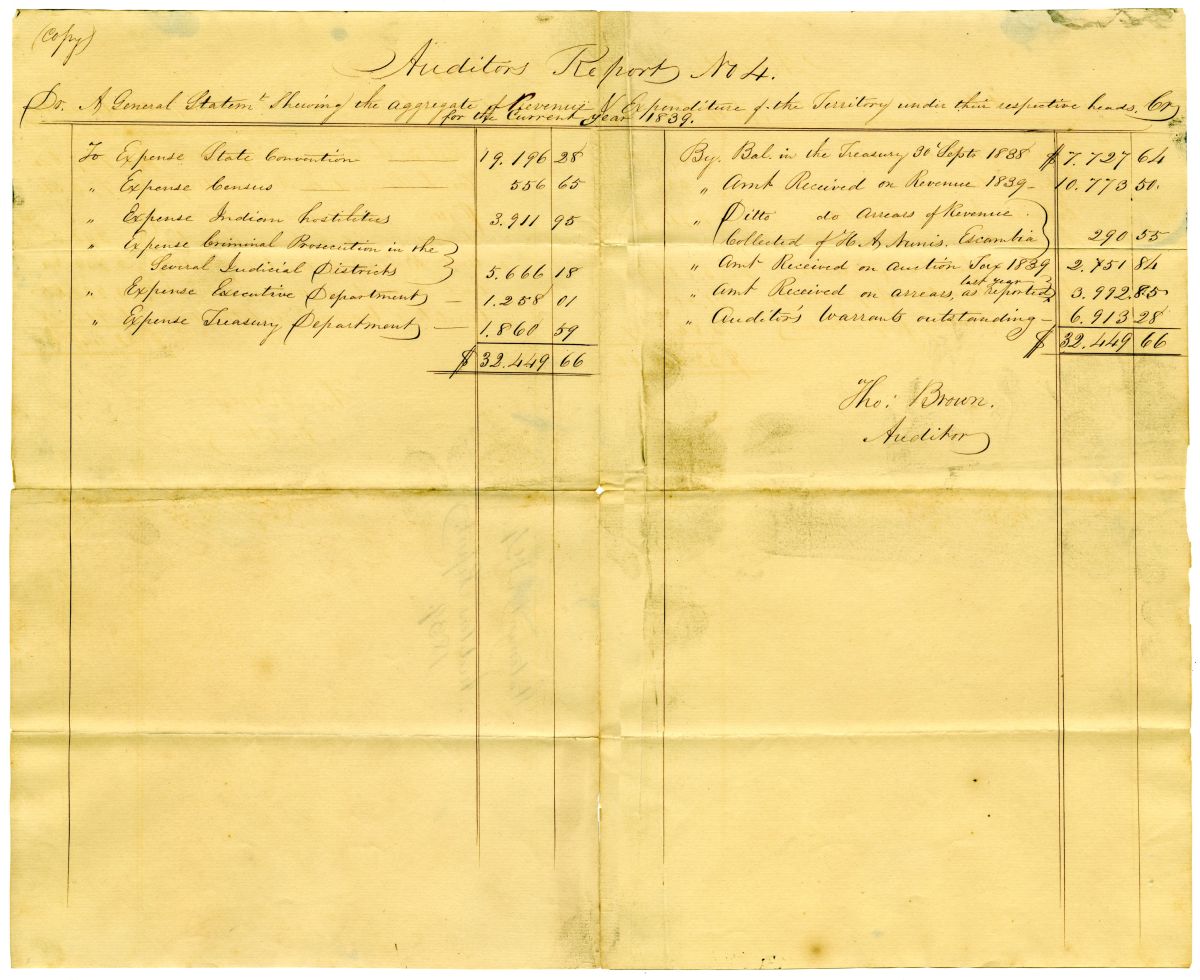 (Copy)
Auditors Report No 4.
Dr. A General Statemt Shewing the aggregate of Revenue & Expenditure of the Territory under their respective heads. Cr
for the Current year 1839.
To Expense State Convention 19.196 28
" Expense Census 556 65
" Expense Indian hostilities 3.911 95
" Expense Criminal Prosecution in the
Several Judicial Districts 5.666 18
" Expense Executive Department 1.258 01
" Expense Treasury Department 1.860 59
$ 32.449 66
By. Bal. in the Treasury 30 Septr 1838 $ 7.727 64
" Amt Received on Revenue 1839 10.773 50.
" Ditto do arrears of Revenue
Collected of H. A. Nunis. Escambia 290 55
" Amt Received on Auction Tax 1839 2.751 84
last year
" Amt Received on arrears, as reported 3.992.85
" Auditor's Warrants outstanding 6.913 28
$ 32.449 66
Tho: Brown.
Auditor